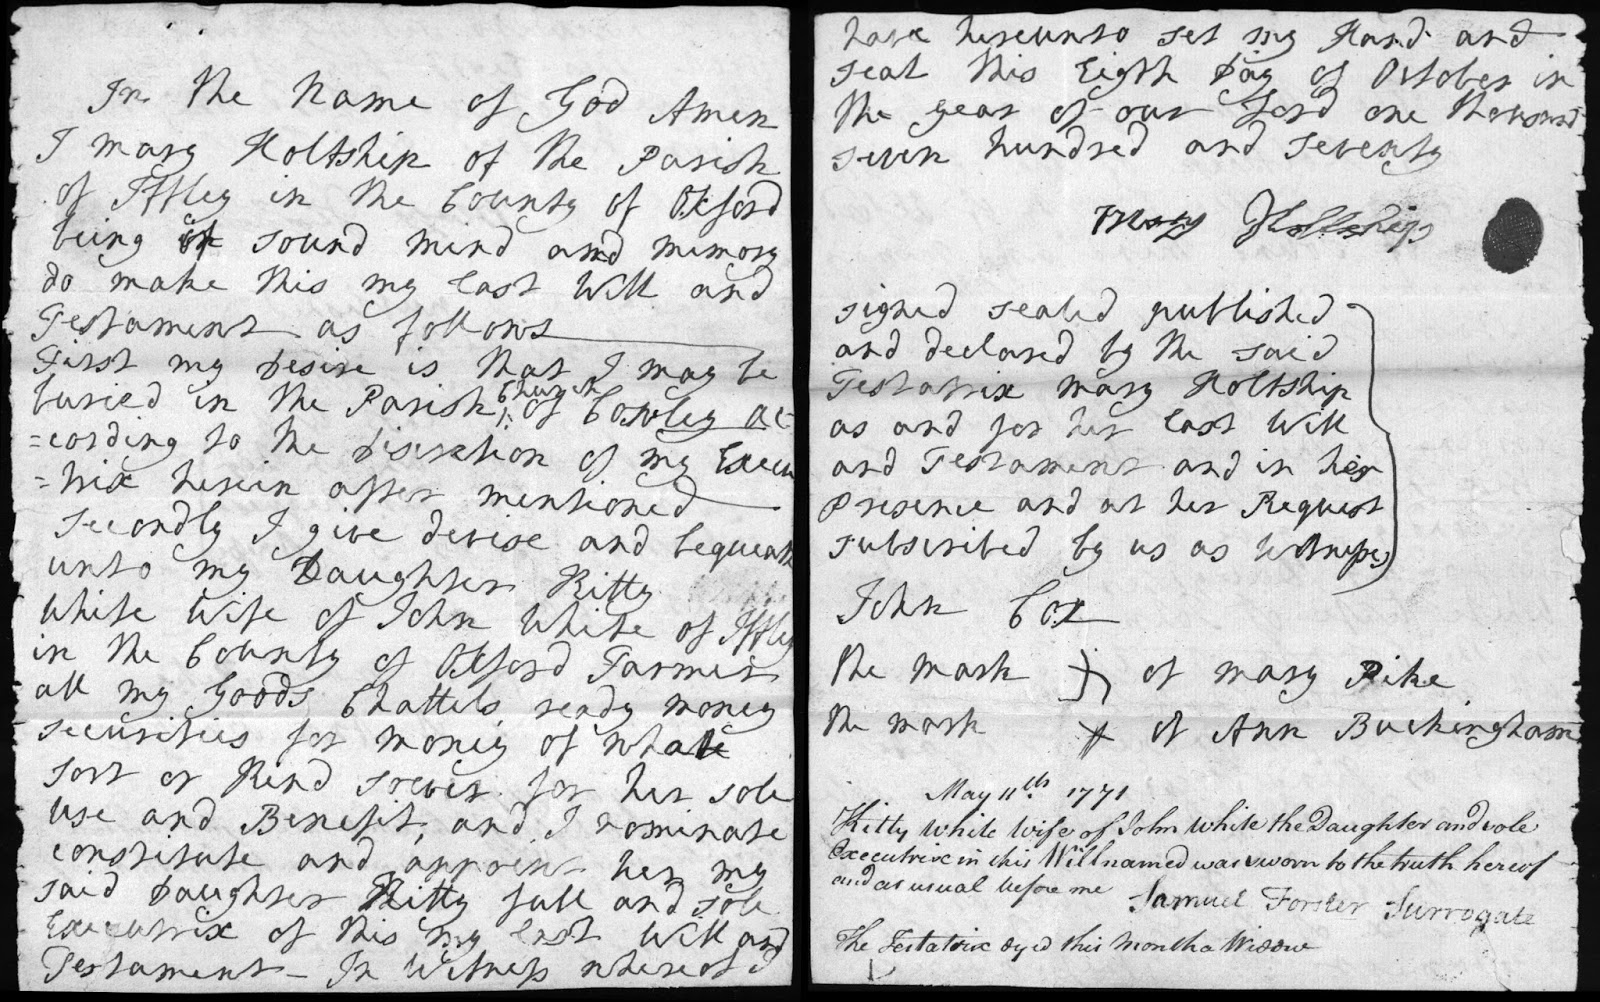 In the Name of God Amen
I Mary Holtship of the Parish
of Iffley in the County of Oxford
being of sound mind and memory
do make this my Last Will and
Testament as follows
First my desire is that I may be
buried in the Parish Church of Cowley ac
=cording to the Discretion of my Execu
=trix herein after mentioned
Secondly I give devise and bequeath
unto my Daughter Kitty
White Wife of John White of Iffley
in the County of Oxford Farmer
all my Goods Chattels ready money
securities for money of what
sort or Kind soever for her sole
use and Benefit, and I nominate
constitute and appoint her my
said Daughter Kitty full and sole
Executrix of this my Last Will and
Testament – In Witness whereof I
have hereunto set my Hand and
seal this Eigth Day of October in
the year of our Lord one thousand
seven hundred and seventy
Mary Holtship
signed sealed published
and declared by the said
Testatrix Mary Holtship
as and for her Last Will
and Testament and in her
Presence and at her Request
subscribed by us as Witnesses
John Cox
the mark of Mary Pike
the mark × of Ann Buckingham
May 11th. 1771
Kitty White Wife of John White the Daughter and sole
Executrix in this Will named was sworn to the truth hereof
and as usual before me
Samuel Forster Surrogate
The Testatrix dyed this Month a Widow